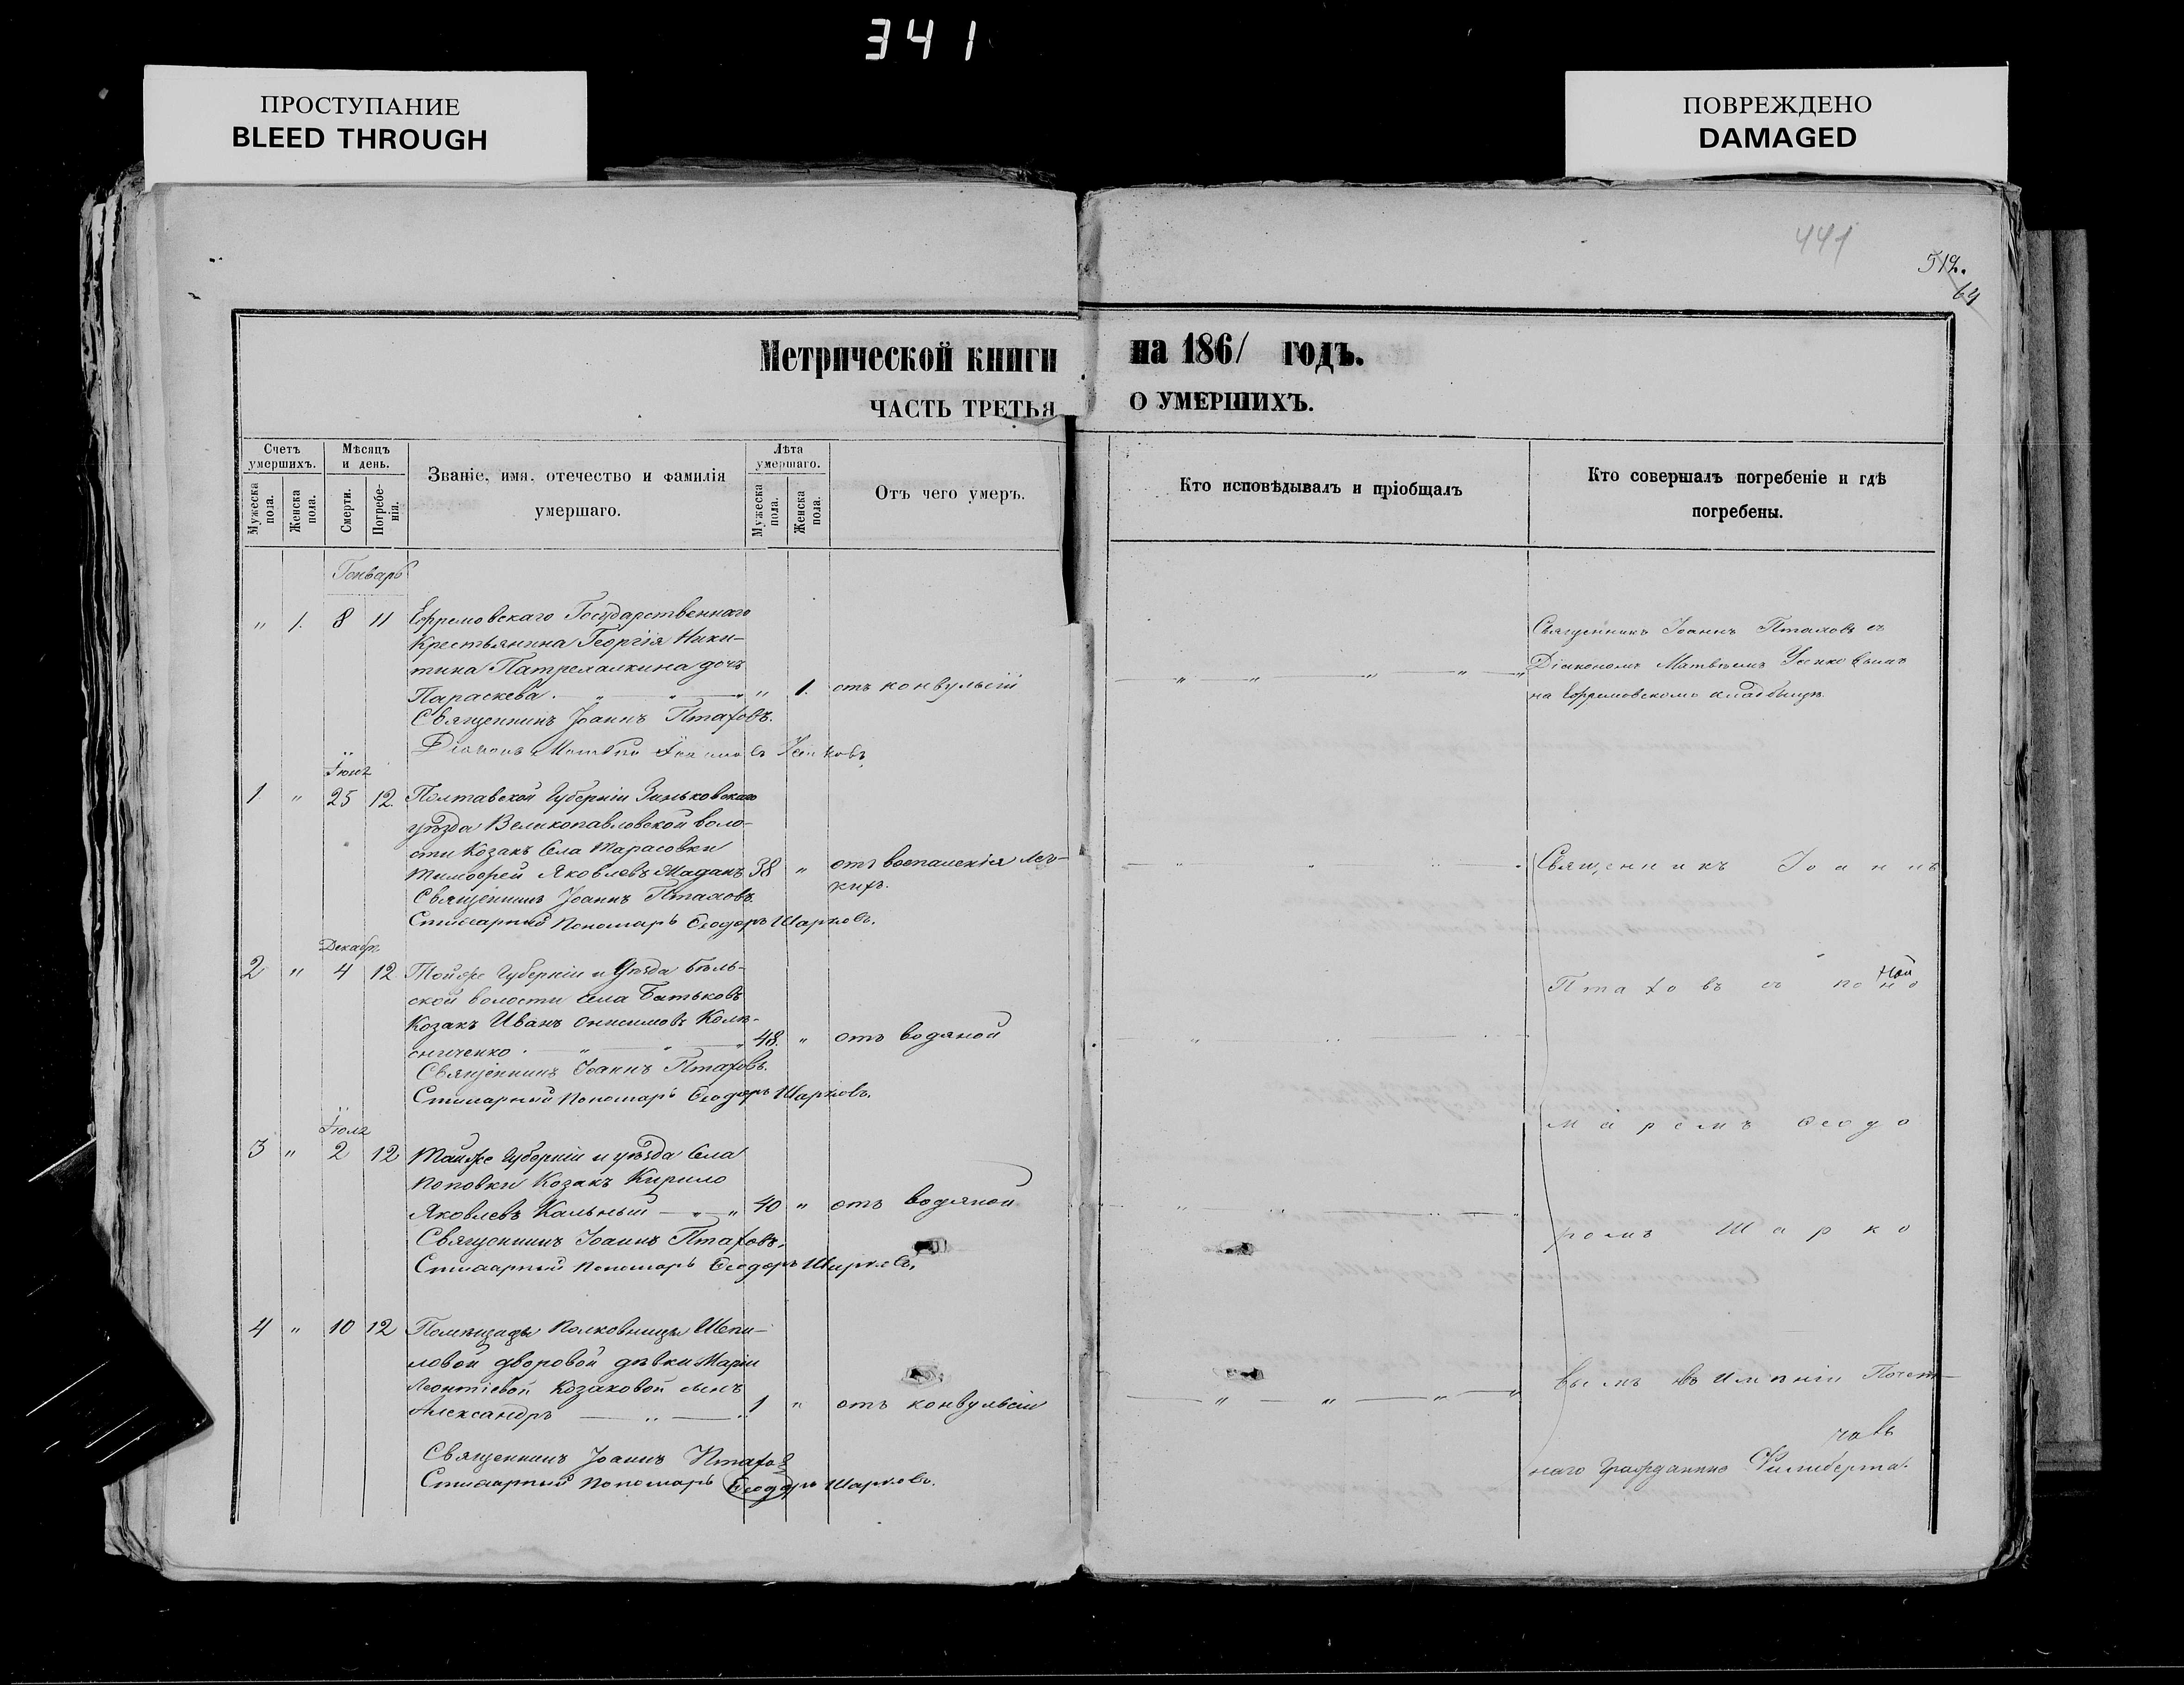 341
ПРОСТУПАНИЕ
BLEED THROUGH
ПОВРЕЖДЕНО
DAMAGED
441
512.
64
Метрической книги на 1861 годъ.
ЧАСТЬ ТРЕТЬЯ О УМЕРШИХЪ.
Счетъ умершихъ.
Мужеска пола.
Женска пола.
Мѣсяцъ и день.
Смерти.
Погребенія.
Званіе, имя, отечество и фамилія
умершаго.
Лѣта умершаго.
Мужеска пола.
Женска пола.
Отъ чего умеръ.
Кто исповѣдывалъ и пріобщалъ
Кто совершалъ погребеніе и гдѣ
погребены.
Генварь
" 1. 8 11 Ефремовскаго Государственнаго
Крестьянина Георгія Ники-
тина Патрелалкина дочь
Параскева. " " " " 1. отъ конвульсій
Священникъ Іоаннъ Птаховъ.
Діаконъ
Священникъ Іоаннъ Птаховъ съ
Діакономъ Матвѣемъ
на Ефремовскомъ кладбищѣ
Іюня
1 " 25 12. Полтавской Губерніи Зиньковскаго
уѣзда Великопавловской воло-
сти Козакъ Села Тарасовки
Тимофей Яковлевъ Маданъ 38 " отъ воспаленія лег-
кихъ.
Священникъ Іоаннъ Птаховъ
Стихарный Пономарь Ѳеодоръ Шарковъ.
Декабр.
2 " 4 12 Тойже Губерніи и Уѣзда Бѣль-
ской волости села Батьковъ
Козакъ Иванъ Онисимовъ Колѣ-
сниченко. " " " 48. " отъ водяной
Священникъ Іоаннъ Птаховъ.
Стихарный Пономарь Ѳеодоръ Шарковъ.
Іюля
3 " 2 12 Тойже Губерніи и уѣзда Села
Поповки Козакъ Кирило
Яковлевъ Кальный " " 40 " отъ водяной
Священникъ Іоаннъ Птаховъ.
Стихарный Пономарь Ѳеодоръ Шарковъ.
4 " 10 12 Помѣщицы Полковницы Шепи-
ловой дворовой дѣвки Маріи
Леонтіевой Козаковой сынъ
Александръ " 1 " отъ конвульсіи
Священникъ Іоаннъ Птаховъ
Стихарный Пономарь Ѳеодоръ Шарковъ.
Священникъ Іоаннъ
Птаховъ съ поно
маремъ Ѳеодо
ромъ Шарко
вымъ въ имѣніи Почет-
наго Гражданина Филиберта.